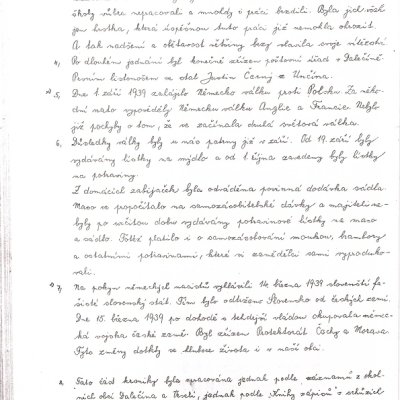 školy vůbec nepracovali a mnohdy i práci brzdili. Byla jich však
jen hrstka, která úspěšnou tuto práci již nemohla ohrozit.
A tak nadšení a obětavost většiny brzy slavila svoje vítězství
4, Po dlouhém jednání byl konečně zřízen poštovní úřad v Dalečíně
Prvním listonošem se stal Justin Černý z Unčína.
5, Dne 1 září 1939 zahájilo Německo válku proti Polsku. Za několik
dní nato vypověděly Německu válku Anglie a Francie. Nebylo
již pochyby o tom, že se začínala druhá světová válka.
6, Důsledky války byly u nás patrny již v září. Od 19. září byly
vydávány lístky na mýdlo a od 1 října zavedeny byly lístky
na potraviny.
Z domácích zabijaček byla odváděna povinná dodávka sádla.
Maso se započítalo na samozásobitelské dávky a majiteli ne-
byly po určitou dobu vydávány potravinové lístky na maso
a sádlo. Totéž platilo i o samozásobování moukou, brambory
a ostatními potravinami, které si zemědělci sami vyproduko-
vali.
7, Na pokyn německých nacistů vyhlásili 14. března 1939 slovenští fa-
šisté slovenský stát. Tím bylo odtrženo Slovensko od českých zemí.
Dne 15. března 1939 po dohodě s tehdejší vládou okupovala němec-
ká vojska české země. Byl zřízen Protektorát Čechy a Morava.
Tyto změny dotkly se hluboce života i v naší obci.
Tato část kroniky byla zpracována jednak podle záznamů z škol-
ních obcí Dalečína a Veselí, jednak podle Knihy zápisů o schůzích